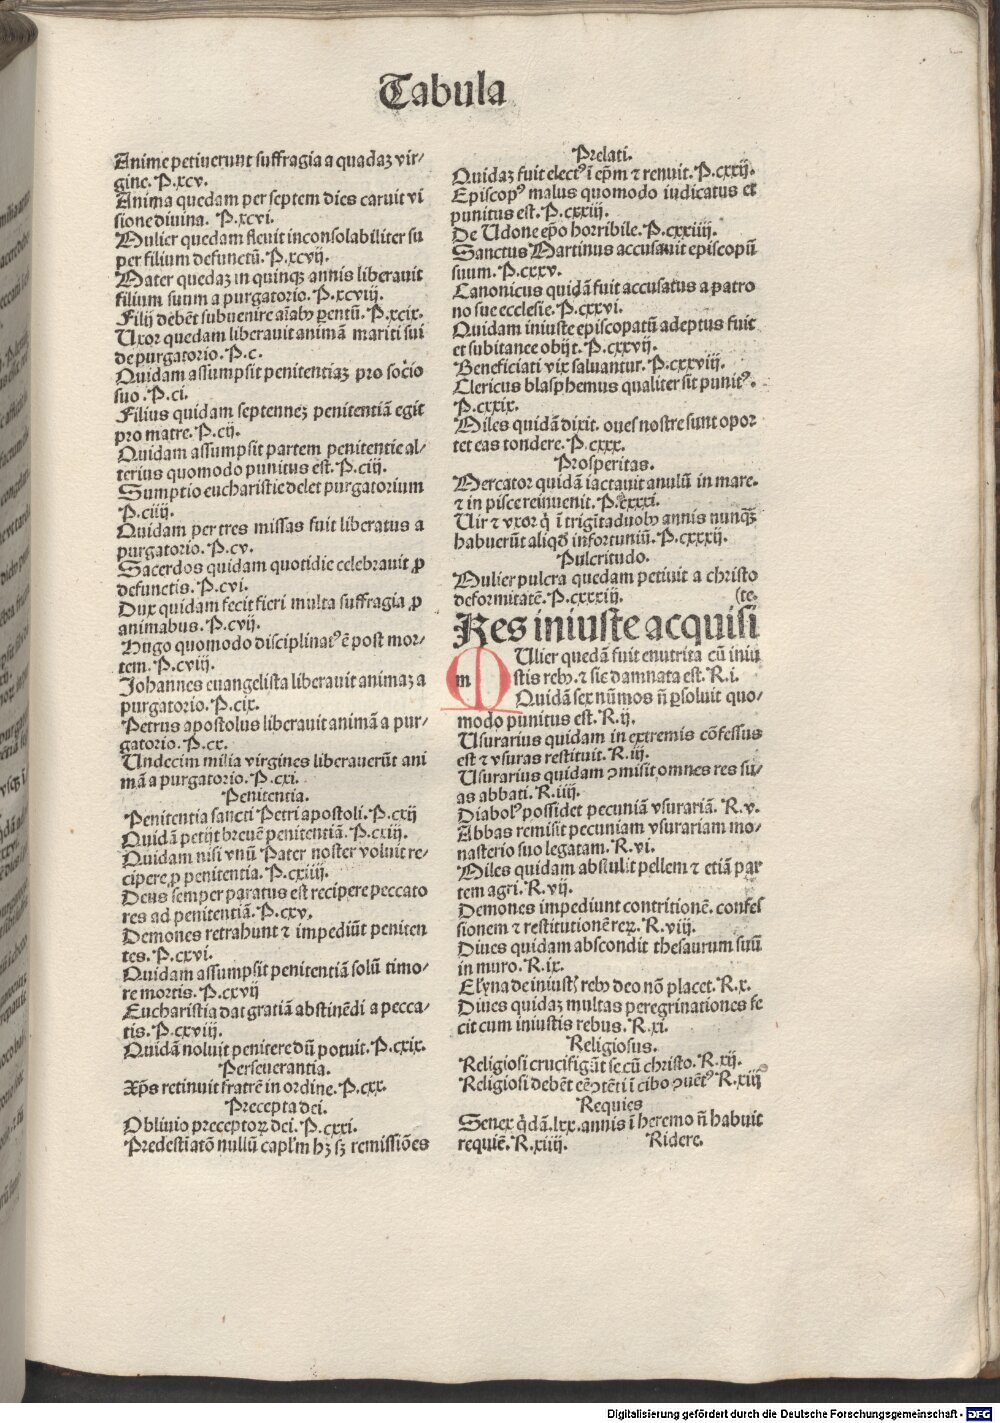 Tabula
Anime petiuerunt suffragia a quadaꝫ vir⸗
gine. P.xcv.
Anima quedam per septem dies caruit vi
sione diuina. P.xcvi.
Mulier quedam fleuit inconsolabiliter su
per filium defunctū. P.xcvij.
Mater quedaꝫ in quinqꝫ annis liberauit
filium suum a purgatorio. P.xcviij.
Filij debēt subuenire aīabꝰ parentū. P.xcix.
Uxor quedam liberauit animā mariti sui
de purgatorio. P.c.
Quidam assumpsit penitentiaꝫ pro socio
suo. P.ci.
Filius quidam septenneꝫ penitentiā egit
pro matre. P.cij.
Quidam assumpsit partem penitentie al⸗
terius quomodo punitus est. P.ciij.
Sumptio eucharistie delet purgatorium
P.ciiij.
Quidam per tres missas fuit liberatus a
purgatorio. P.cv.
Sacerdos quidam quotidie celebrauit ꝓ
defunctis. P.cvi.
Dux quidam fecit fieri multa suffragia ꝓ
animabus. P.cvij.
Hugo quomodo disciplinatꝰ ē post mor⸗
tem. P.cviij.
Johannes euangelista liberauit animaꝫ a
purgatorio. P.cix.
Petrus apostolus liberauit animā a pur⸗
gatorio. P.cx.
Undecim milia virgines liberauerūt ani
mā a purgatorio. P.cxi.
Penitentia.
Penitentia sancti Petri apostoli. P.cxij
Quidā petijt breuē penitentiā. P.cxiij.
Quidam nisi vnū Pater noster voluit re⸗
cipere ꝓ penitentia. P.cxiiij.
Deus semper paratus est recipere peccato
res ad penitentiā. P.cxv.
Demones retrahunt ⁊ impediūt peniten
tes. P.cxvi.
Quidam assumpsit penitentiā solū timo⸗
re mortis. P.cxvij
Eucharistia dat gratiā abstinēdi a pecca⸗
tis. P.cxviij.
Quidā noluit penitere dū potuit. P.cxix.
Perseuerantia.
Xp̄s retinuit fratrē in ordine. P.cxx.
Precepta dei.
Obliuio preceptoꝝ dei. P.cxxi.
Predestīatō nullū capl'm hꝫ sꝫ remissiōes
Prelati.
Quidaꝫ fuit electꝰ ī ep̄m ⁊ renuit. P.cxxij.
Episcopꝰ malus quomodo iudicatus et
punitus est. P.cxxiij.
De Udone ep̄o horribile. P.cxxiiij.
Sanctus Martinus accusauit episcopū
suum. P.cxxv.
Canonicus quidā fuit accusatus a patro
no sue ecclesie. P.cxxvi.
Quidam iniuste episcopatū adeptus fuit
et subitanee obijt. P.cxxvij.
Beneficiati vix saluantur. P.cxxviij.
Clericus blasphemus qualiter sit punitꝰ.
P.cxxix.
Miles quidā dixit. oues nostre sunt opor
tet eas tondere. P.cxxx.
Prosperitas.
Mercator quidā iactauit anulū in mare.
⁊ in pisce reinuenit. P.cxxxi.
Uir ⁊ vxor q̇ ī trigītaduobꝰ annis nunqꝫ
habuerūt aliqd̄ infortuniū. P.cxxxij.
Pulcritudo.
Mulier pulcra quedam petiuit a christo
deformitatē. P.cxxxiij. (te.
Res iniuste acquisi
m MUlier quedā fuit enutrita cū iniu
stis rebꝰ. ⁊ sic damnata est. R.i.
Quidā sex nūmos nō ꝑsoluit quo⸗
modo punitus est. R.ij.
Usurarius quidam in extremis cōfessus
est ⁊ vsuras restituit. R.iij.
Usurarius quidam ꝯmisit omnes res su⸗
as abbati. R.iiij.
Diabolꝰ possidet pecuniā vsurariā. R.v.
Abbas remisit pecuniam vsurariam mo⸗
nasterio suo legatam. R.vi.
Miles quidam abstulit pellem ⁊ etiā par
tem agri. R.vij.
Demones impediunt contritionē. confes
sionem ⁊ restitutionē reꝝ. R.viij.
Diues quidam abscondit thesaurum suū
in muro. R.ix.
Elyna de iniustꝭ rebꝰ deo nō placet. R.x.
Diues quidaꝫ multas peregrinationes fe
cit cum iniustis rebus. R.xi.
Religiosus.
Religiosi crucifigāt se cū christo. R.xij.
Religiosi debēt eē ꝯtēti ī cibo ꝯuētꝰ R.xiij
Requies
Senex q̇dā.lxx.annis ī heremo n̄ habuit
requiē. R.xiiij. Ridere.
Digitalisierung gefördert durch die Deutsche Forschungsgemeinschaft - DFG